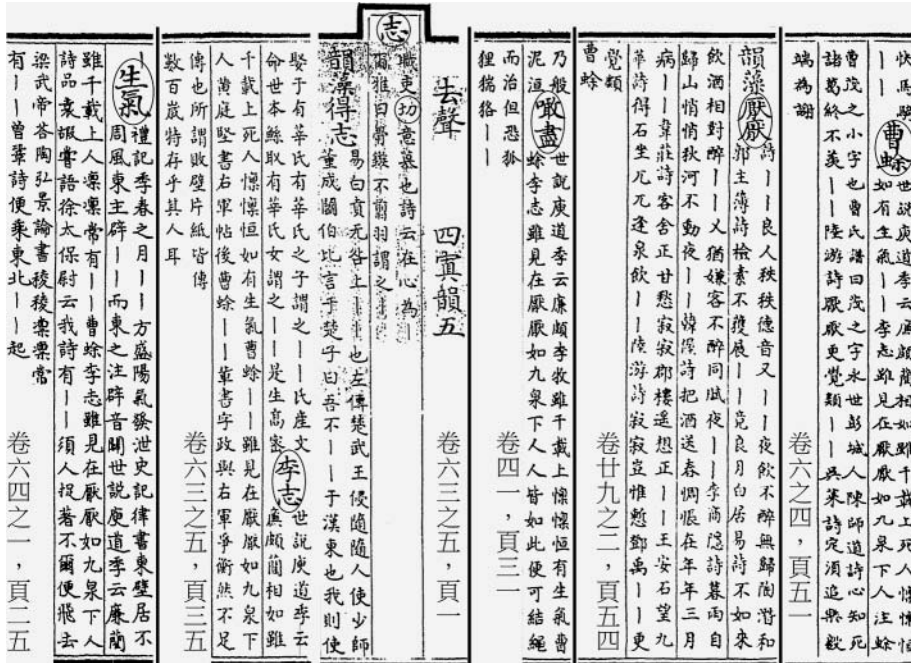 快馬
曹蜍 世說庾道季云廉頗藺相如雖千載上死人懍懍恒
如有生氣丨丨李志雖見在厭厭如九泉下人注蜍
曹茂之小字也曹氏譜曰茂之字永世彭城人陳師道詩心知死
諸葛終不羨丨丨陸游詩厭厭更覺類丨丨吳萊詩定須追
端為謝
卷六之四，頁五一
韻藻厭厭 詩丨丨良人秩秩德音又丨丨夜飲不醉無歸陶潛和
郭主簿詩檢素不獲展丨丨竟良月白居易詩不如來
飲酒相對醉丨丨又猶嫌客不醉同賦夜丨丨李商隱詩暮雨自
歸山悄悄秋河不動夜丨丨韓偓詩把酒送春惆悵在年年三月
病丨丨韋莊詩客舍正甘愁寂寂郡樓遙想正丨丨王安石望九
華詩得石坐兀兀逢泉飲丨丨陸游詩寂寂豈惟慙鄧禹丨丨更
覺類
曹蜍
卷廿九之二，頁五四
乃般
泥洹 噉盡 世說庾道季云廉頗李牧雖千載上懍懍恒有生氣曹
蜍李志雖見在厭厭如九泉下人人皆如此便可結繩
而治但恐狐
狸猯狢丨丨
卷四一，頁三一
去聲 四寘韻五
卷六三之五，頁一
志 職吏切意慕也詩云在心為丨
爾雅曰骨鏃不翦羽謂之丨
韻藻得志 易曰貢无咎上丨丨也左傳楚武王侵隨隨人使少師
董成鬬伯比言于楚子曰吾不丨丨于漢東也我則使
娶于有莘氏有莘氏之子謂之丨丨氏產文
命世本鯀取有莘氏女謂之丨丨是生高密
李志 世說庾道季云
廉頗藺相如雖
千載上死人懍懍恒如有生氣曹蜍丨丨雖見在厭厭如九泉下
人黃庭堅書右軍帖後曹蜍丨丨輩書字政與右軍爭衡然不足
傳也所謂敗壁片紙皆傳
數百歲特存乎其人耳
卷六三之五，頁三五
生氣 禮記季春之月丨丨方盛陽氣發泄史記律書東壁居不
周風東主辟丨丨而東之注辟音闢世說庾道季云廉藺
雖千載上人凜凜常有丨丨曹蜍李志雖見在厭厭如九泉下人
詩品袁嘏嘗語徐太保尉云我詩有丨丨須人捉著不爾便飛去
梁武帝答陶弘景論書稜稜凜凜常
有丨丨曾鞏詩便乘東北丨丨起
卷六四之一，頁二五